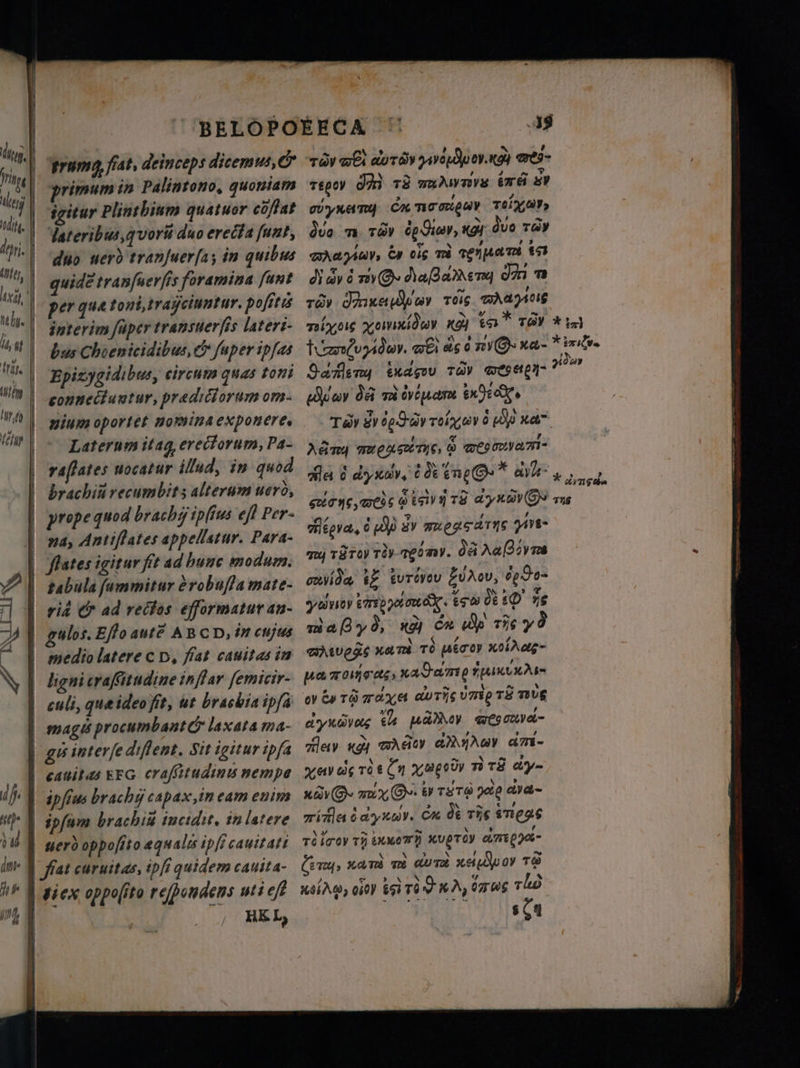 BELOPOEECA 19
grumq, fiat, deinceps dicemus, &
primum in Palintono, quoniam
igitur Plinthium quatuor cõstat
lateribus, quorũ duo erecta sunt,
duo uerò transuersa; in quibus
quidẽ transuersis foramina sunt
per qua toni, trajiciuntur. positis
interim super transuersis lateri-
bus Choenicidibus, & super ipsas
Epizygidibus, circum quas toni
connectuntur, prædictorum om-
nium oportet nomina exponere.
Laterum itaq; erectorum, Pa-
rastates uocatur illud, in quod
brachiũ recumbit; alterum uerò,
prope quod brachij ipsius est Per-
na, Antistates appellatur. Para-
states igitur fit ad hunc modum:
tabula summitur è robusta mate-
riâ & ad rectos efformatur an-
gulos. Esto autẽ ABCD, in cujus
medio latere CD, fiat cauitas in
ligni crassitudine instar semicir-
culi, quæ ideo fit, ut brachia ipsa
magis procumbant & laxata ma-
gis inter se distent. Sit igitur ipsa
cauitas EFG crassitudinis nempe
ipsius brachij capax, in eam enim
ipsum brachiũ incidit. in latere
uerò opposito æqualis ipsi cauitati
fiat curuitas, ipsi quidem cauita-
ti ex opposito respondens uti est
HKL,
τῶν περὶ αὐτῶν γινόμενον. καὶ πρό-
τερον ἐπὶ τοῦ παλιντόνου ἐπεὶ οὖν
σύγκειται ἐκ τεσσάρων τοίχων,
δύο τε τῶν ὀρθίων, καὶ δύο τῶν
πλαγίων, ἐν οἷς τὰ τρήματά ἐστι
δι ὧν ὁ τόνος διαβάλλεται ἐπί τε
τῶν ἐπικειμένων τοῖς πλαγίοις
τοίχοις χοινικίδων καὶ ἐστι * τῶν * ἐπὶ
† ὑποζυγίδων. περὶ ἃς ὁ τόνος κα-
θάπτεται ἑκάστου τῶν προειρη-
μένων δεῖ τὰ ὀνόματα ἐκθέσθαι.
Τῶν οὖν ὀρθῶν τοίχων ὁ μὲν κα-
λεῖται παραστάτης, ᾧ προσαναπί-
πτει ὁ ἀγκών, ὁ δὲ ἕτερος * ἀντι-
στάτης, πρὸς ᾧ ἐστὶν ἡ τοῦ ἀγκῶνος
πτέρνα, ὁ μὲν οὖν παραστάτης γίνε-
ται τοῦτον τὸν τρόπον. δεῖ λαβόντα
σανίδα ἐξ εὐτόνου ξύλου, ὀρθο-
γώνιον ἀπεργάσασθαι. ἔστω δὲ ἐφ᾽ ἧς
τὰ α β γ δ, καὶ ἐκ μὲν τῆς γ δ
πλευρᾶς κατὰ τὸ μέσον κοίλασ-
μα ποιήσας, καθάπερ ἡμικύκλι-
ον ἐν τῷ πάχει αὐτῆς ὑπὲρ τοῦ τοὺς
ἀγκῶνας ἔτι μᾶλλον προσανα-
πίπτειν καὶ πλεῖον ἀλλήλων ἀπέ-
χειν ὡς τὸ ε ζ η χωροῦν τὸ τοῦ ἀγ-
κῶνος πάχος. ἐν τούτῳ γὰρ ἀνα-
πίπτει ὁ ἀγκών. ἐκ δὲ τῆς ἑτέρας
τὸ ἴσον τῇ ἐκκοπῇ κυρτὸν ἀπεργά-
ζεται, κατὰ τὰ αὐτὰ κείμενον τῷ
κοίλῳ, οἷον ἐστὶ τὸ θ κ λ, ὅπως τὴν